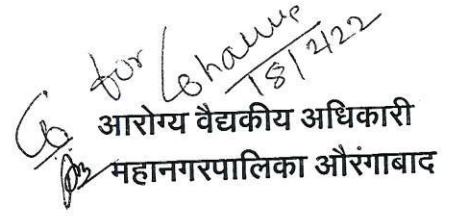 for
आरोग्य वैद्यकीय अधिकारी
महानगरपालिका औरंगाबाद